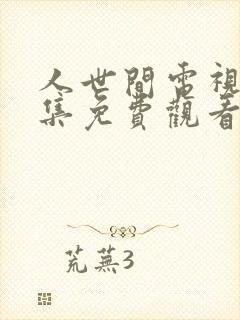 人世間電視
集免費觀看
荒蕪3